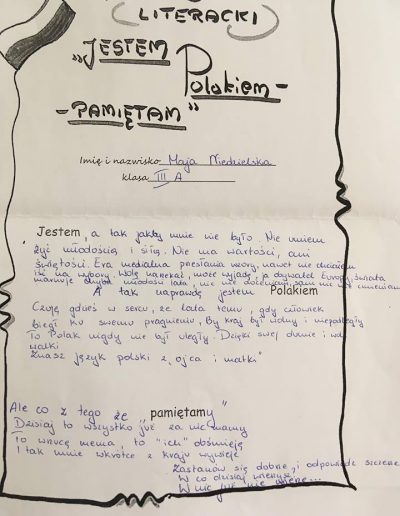 LITERACKI
„JESTEM
Polakiem-
-PAMIĘTAM"
Imię i nazwisko Maja Niedzielska
klasa III A
Jestem, a tak jakby mnie nie było. Nie umiem
żyć młodością i siłą. Nie ma wartości, ani
świętości. Era medialna przesłania wzory, nawet nie chciałem
iść na wybory. Wolę narzekać, może wyjadę, ja obywatel Europy, świata
marnuję chyba młodości lata, nic nie doceniam, sam nie
A tak naprawdę jestem Polakiem
Czuję gdzieś w sercu, że lata temu, gdy człowiek
biegł ku swemu pragnieniu, By kraj był wolny i niepodległy
To Polak nigdy nie był uległy. Dzięki swej dumie i woli
walki
Znasz język polski z „ojca i matki"
Ale co z tego że „pamiętamy"
Dzisiaj to wszystko już za nic mamy
To wrócę niema, to "ich" dośmieję
I tak mnie wkrótce z kraju wywieje
Zastanów się dobrze, i odpowiedz szczerze
W co dzisiaj wierzysz,
W nic już nie wierzę...